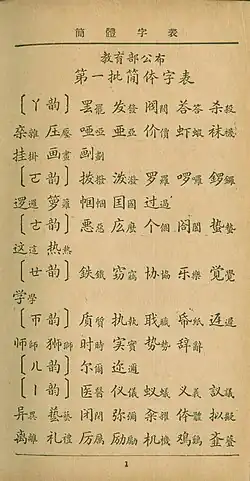 簡體字表
教育部公布
第一批简体字表
〔ㄚ韵〕 罢罷 发發 阀閥 荅答 杀殺
杂雜 压壓 哑啞 亚亞 价價 虾蝦 袜襪
挂掛 画畫 劃
〔ㄛ韵〕 拨撥 泼潑 罗羅 啰囉 锣鑼
逻邏 箩籮 帼幗 国國 过過
〔ㄜ韵〕 恶惡 庅麼 个個 阁閣 蛰蟄
这這 热熱
〔ㄝ韵〕 鉄鐵 窃竊 协協 乐樂 覚覺
学學
〔ㄭ韵〕 质質 执執 职職 帋紙 迟遲
师師 狮獅 时時 实實 势勢 辞辭
〔ㄦ韵〕 尔爾 迩邇
〔ㄧ韵〕 医醫 仪儀 蚁蟻 义義 议議
异異 艺藝 闭閉 弥彌 籴糴 体體 拟擬
离離 礼禮 厉厲 励勵 机機 鸡鷄
1